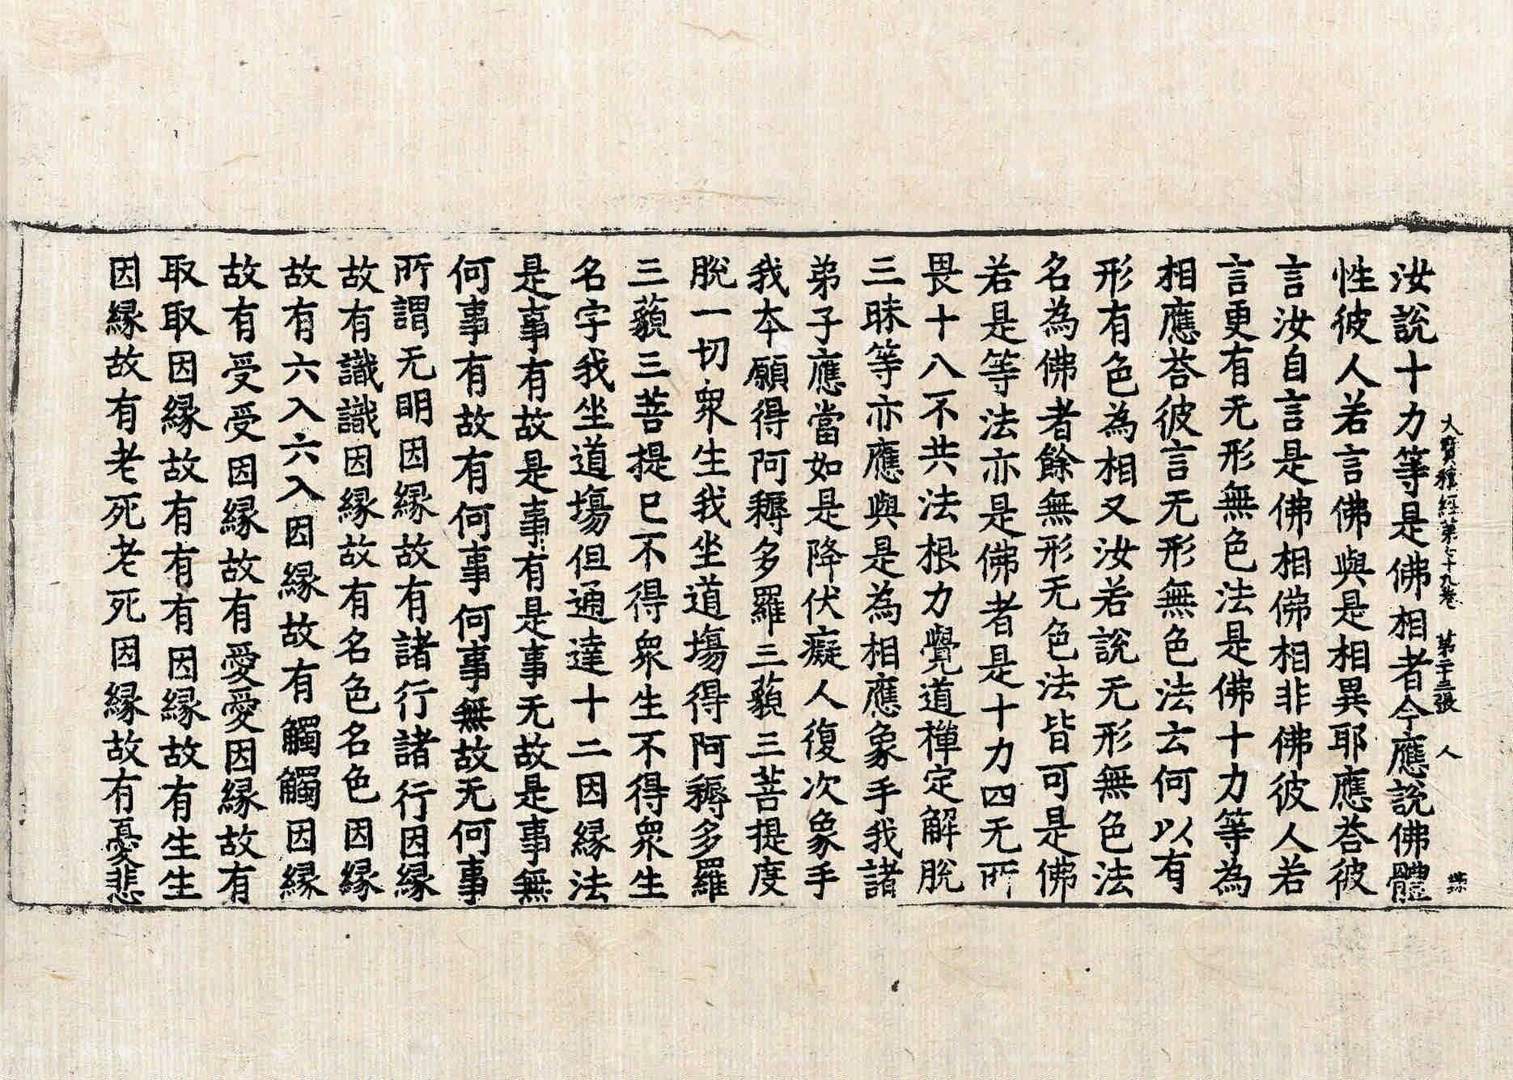 大寶積經第七十九卷　第二十三張　人
汝說十力等是佛相者今應說佛體
性彼人若言佛與是相異耶應荅彼
言汝自言是佛相佛相非佛彼人若
言更有无形無色法是佛十力等為
相應荅彼言无形無色法云何以有
形有色為相又汝若說无形無色法
名為佛者餘無形无色法皆可是佛
若是等法亦是佛者是十力四无所
畏十八不共法根力覺道禪定解脫
三昧等亦應與是為相應象手我諸
弟子應當如是降伏癡人復次象手
我夲願得阿耨多羅三藐三菩提度
脫一切衆生我坐道場得阿耨多羅
三藐三菩提已不得衆生不得衆生
名字我坐道場但通達十二因緣法
是事有故是事有是事无故是事無
何事有故有何事何事無故无何事
所謂无明因緣故有諸行諸行因緣
故有識識因緣故有名色名色因緣
故有六入六入因緣故有觸觸因緣
故有受受因緣故有愛愛因緣故有
取取因緣故有有有因緣故有生生
因緣故有老死老死因緣故有憂悲